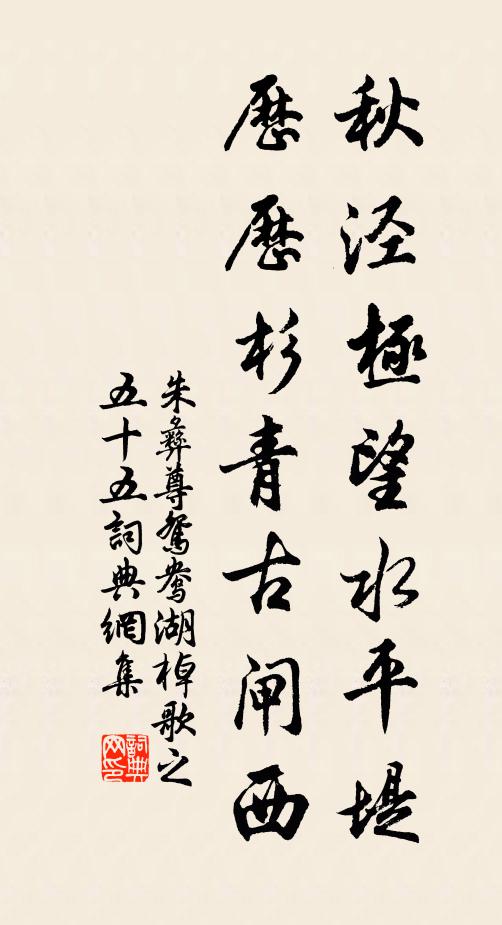 秋泾極望水平堤
歷歷杉青古闸西
朱彝尊鴛鴦湖棹歌之
五十五詞典網集
詞典网印